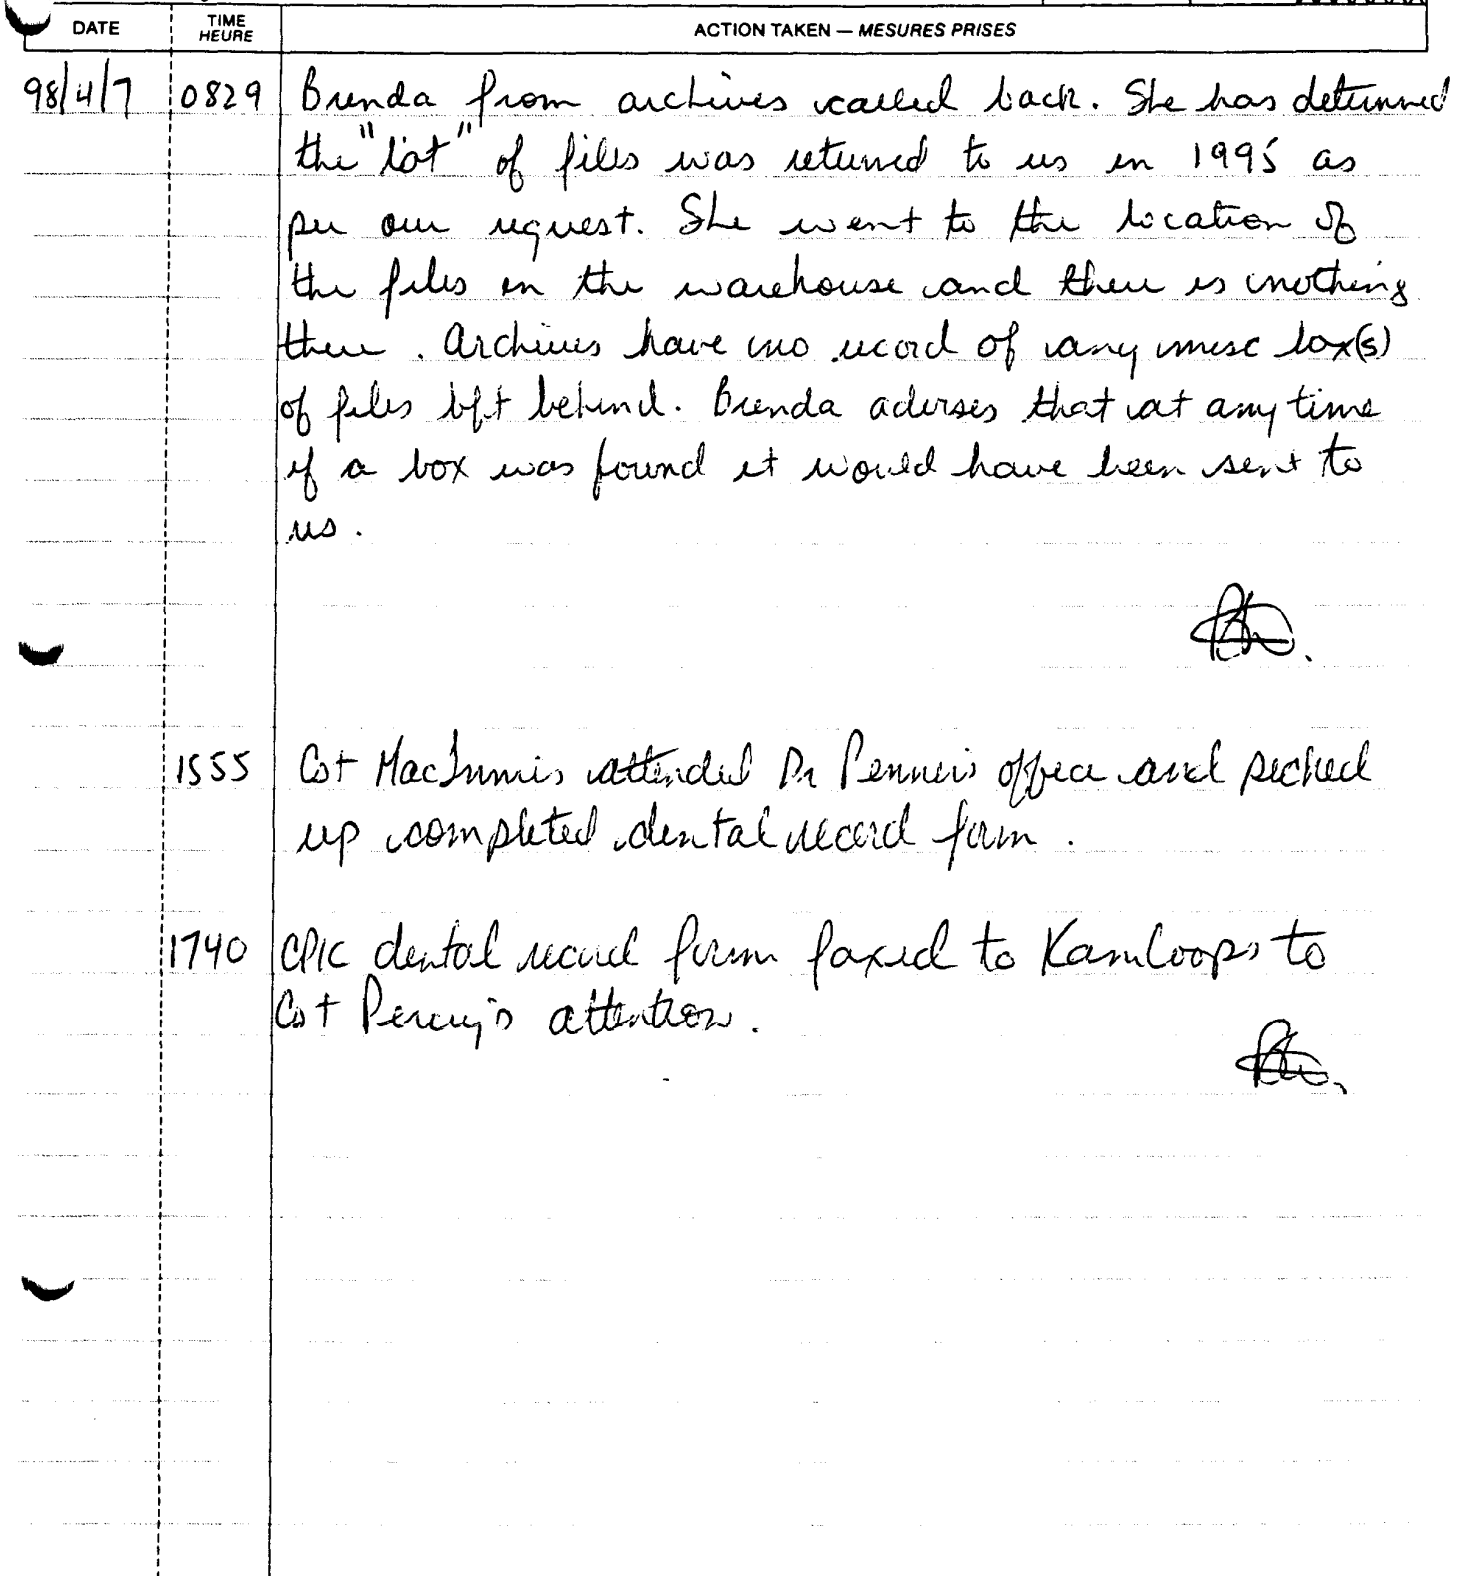 DATE TIME HEURE ACTION TAKEN — MESURES PRISES
98/4/7 0829 Brenda from archives called back. She has determined
the "lot" of files was returned to us in 1995 as
per our request. She went to the location of
the files in the warehouse and there is nothing
there. Archives have no record of any misc box(s)
of files left behind. Brenda advises that at any time
if a box was found it would have been sent to
us.
1555 Cst MacInnis attended Dr Penner's office and picked
up completed dental record form.
1740 CPIC dental record form faxed to Kamloops to
Cst Percy's attention.